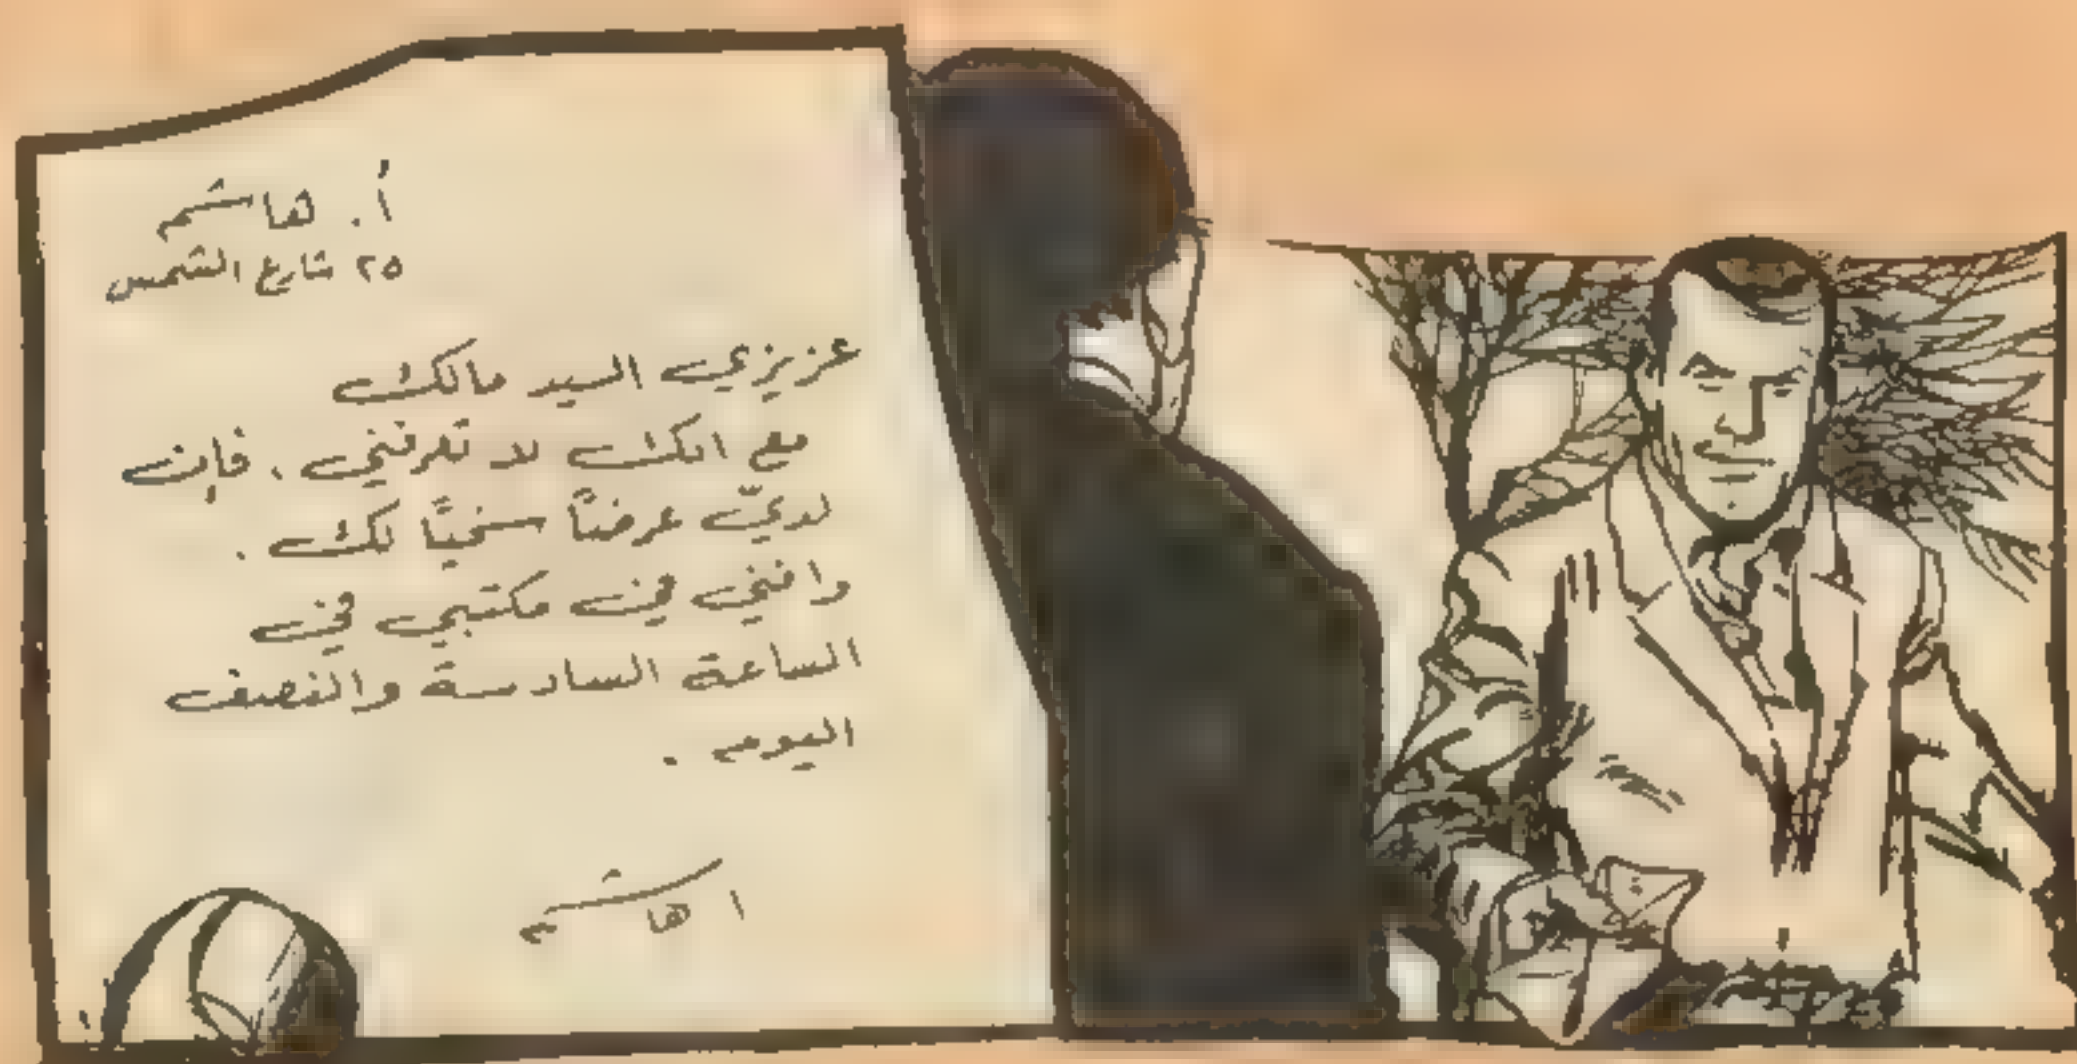 أ. هاشم
٢٥ شارع الشمس
عزيزي السيد مالك
مع انك لا تعرفني ، فإن
لديّ عرضاً سخيًا لك .
وافني في مكتبي في
الساعة السادسة والنصف
اليوم .
ا هاشم